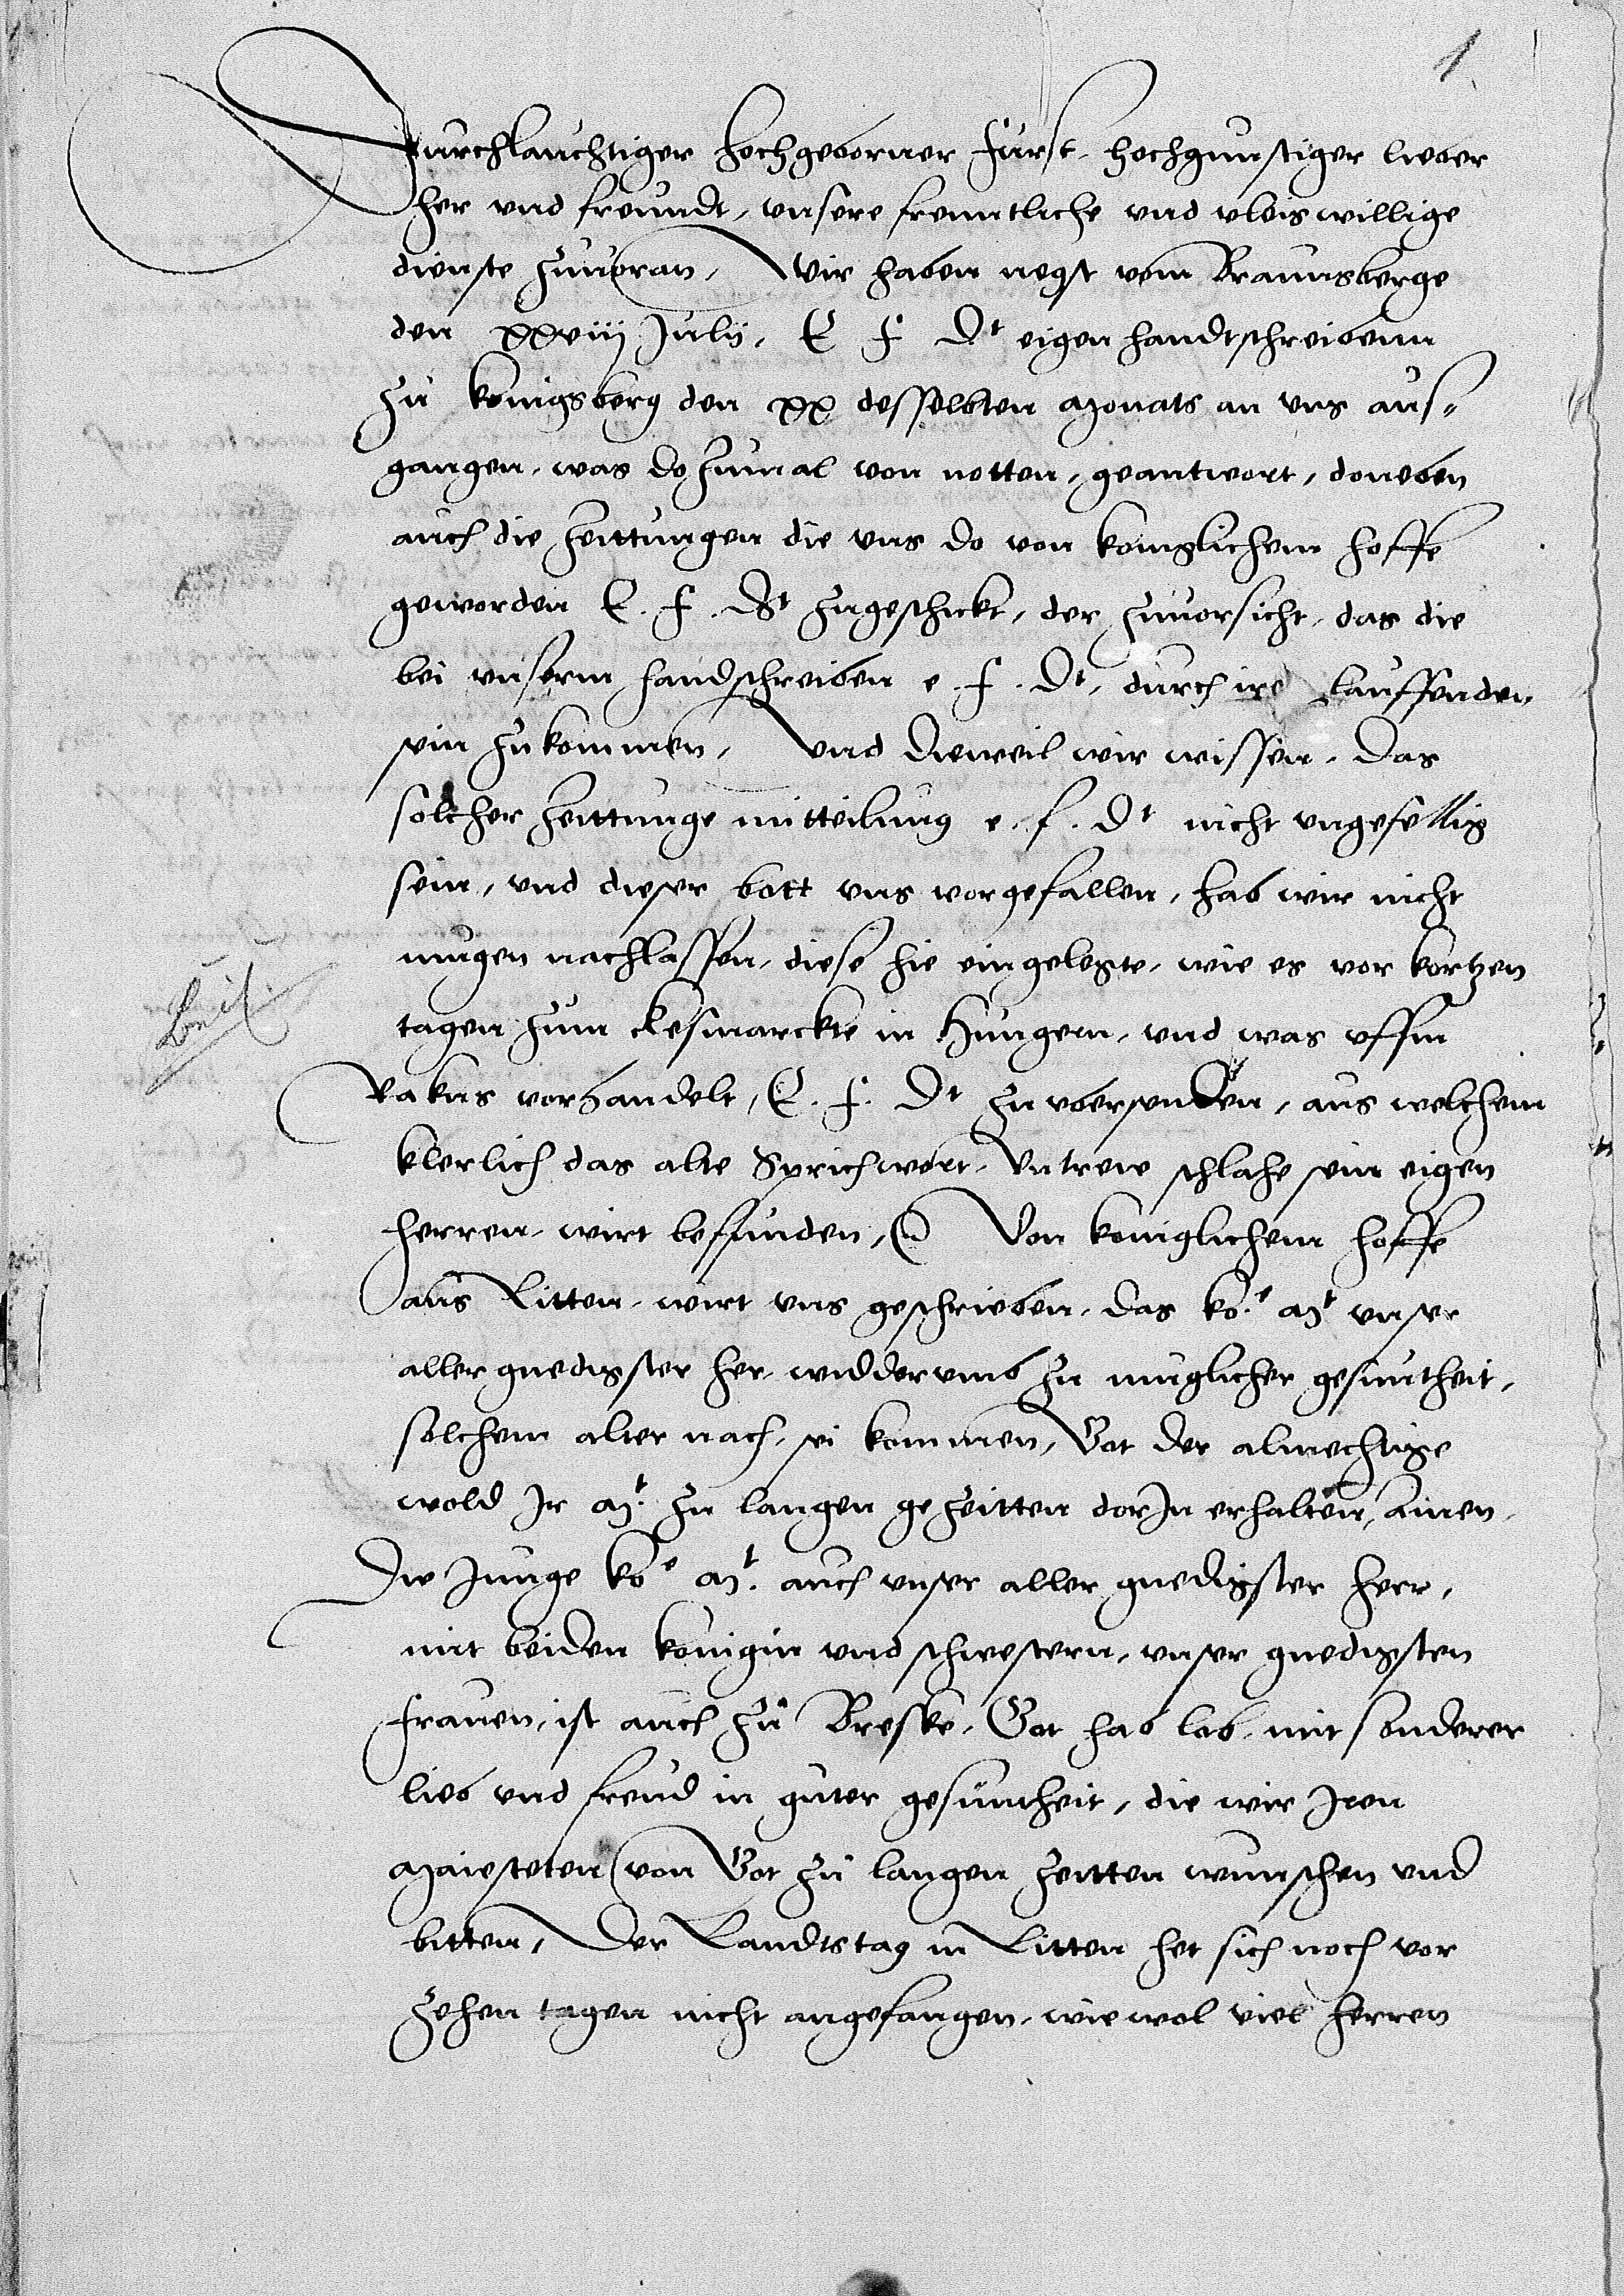 1
Durchlauchtiger hochgeborner furst, hochgunstiger lieber
her vnd freundt, vnsere freuntliche vnd vleis willige
dienste zuuoran, Wir haben negst vom Braunsberge
den xxviij Julij, E F Dt eigen handtschreibenn
zu konigsberg den xx desselbten Monats an vns aus-
gangen, was do zumal von notten, geantwort, doneben
auch die zeittungen die vns do von koniglichem hoffe
geworden E. F. Dt zugeschickt, der zuuorsicht, das die
bei vnserm handschreiben e. f. Dt, durch ire lauffenden
sein zukommen, Vnd dieweil wir wissen, das
solcher zeittunge mitteilung e. f. Dt nicht vngefellig
sein, vnd dieser bott vns vorgefallen, hab wir nicht
mugen nachlassen, diese hie eingelegte, wie es vor kortzen
tagen zum Kesmarckte in Hungern, vnd was vffm
Rakus vorhandelt, E. F. Dt zu vbersenden, aus welchem
klerlich das alte Sprichwort, Vntrew schlahe sein eigen
herren, wirt befunden, Von koniglichem hoffe
aus Litten, wirt vns geschrieben, das ko.e Mt vnser
aller gnedigster her, widderumb zu muglicher gesuntheit,
solchem alter nach, sei kommen, Got der almechtige
wold Ir Mt. zu langen gezeitten dorIn erhalten, amen.
Die Junge koe Mt. auch vnser aller gnedigster herr,
mit beiden konigin vnd schwestern, vnser gnedigsten
frauen, ist auch zu Breske, Got hab lob, mit sonderer
lieb vnd freud in guter gesuntheit, die wir Iren
Maiesteten von Got zu langen zeitten wunschen vnd
bitten, Der Landtstag in Litten het sich noch vor
zehen tagen nicht angefangen, wie wol viel herren